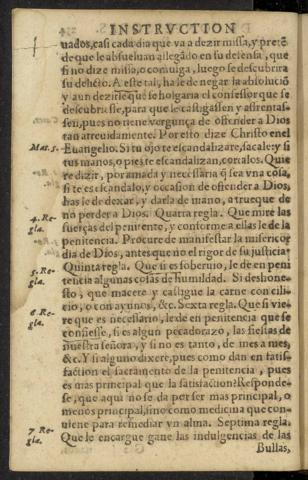 INSTRVCTION
uados, casi cada dia que va a dezir missa, y pretẽ
de que le absueluan allegado en su defensa, que
si no dize missa, o comulga, luego se descubrira
su delicto. A este tal, ha se de negar la absoluciõ
y aun dezirle que se holgaria el confessor que se
descubriesse, para que le castigassen y afrentas-
sen, pues no tiene verguença de offender a Dios
tan atreuidamente. Por esto dize Christo en el
Mat. 5. Euangelio. Si tu ojo te escandalizare, sacale: y si
tus manos, o pies, te escandalizan, cortalos. Quie
re dizir, por amada y necessaria q̃ sea vna cosa,
si te es escandalo, y occasion de offender a Dios,
has le de dexar, y darla de mano, a trueque de
no perder a Dios. Quarta regla. Que mire las
4. Re-
gla.
fuerças del penitente, y conforme a ellas le de la
penitencia. Procure de manifestar la misericor
dia de Dios, antes que no el rigor de su justicia.
5. Re-
gla.
Quinta regla. Que si es soberuio, le de en peni
tencia algunas cosas de humildad. Si deshone-
sto, que macere y castigue la carne con cili-
cio, o con ayunos, &c. Sexta regla. Que si vie-
6. Re-
gla.
re que es necessario, le de en penitencia que se
confiesse, si es algun pecadorazo, las fiestas de
nuestra señora, y si no es tanto, de mes a mes,
&c. Y si alguno dixere, pues como dan en satis-
faction el sacramento de la penitencia, pues
es mas principal que la satisfaction? Responde-
se, que aqui no se da por ser mas principal, o
menos principal, sino como medicina que con-
uiene para remediar vn alma. Septima regla.
7. Re-
gla.
Que le encargue gane las indulgencias de las
Bullas,